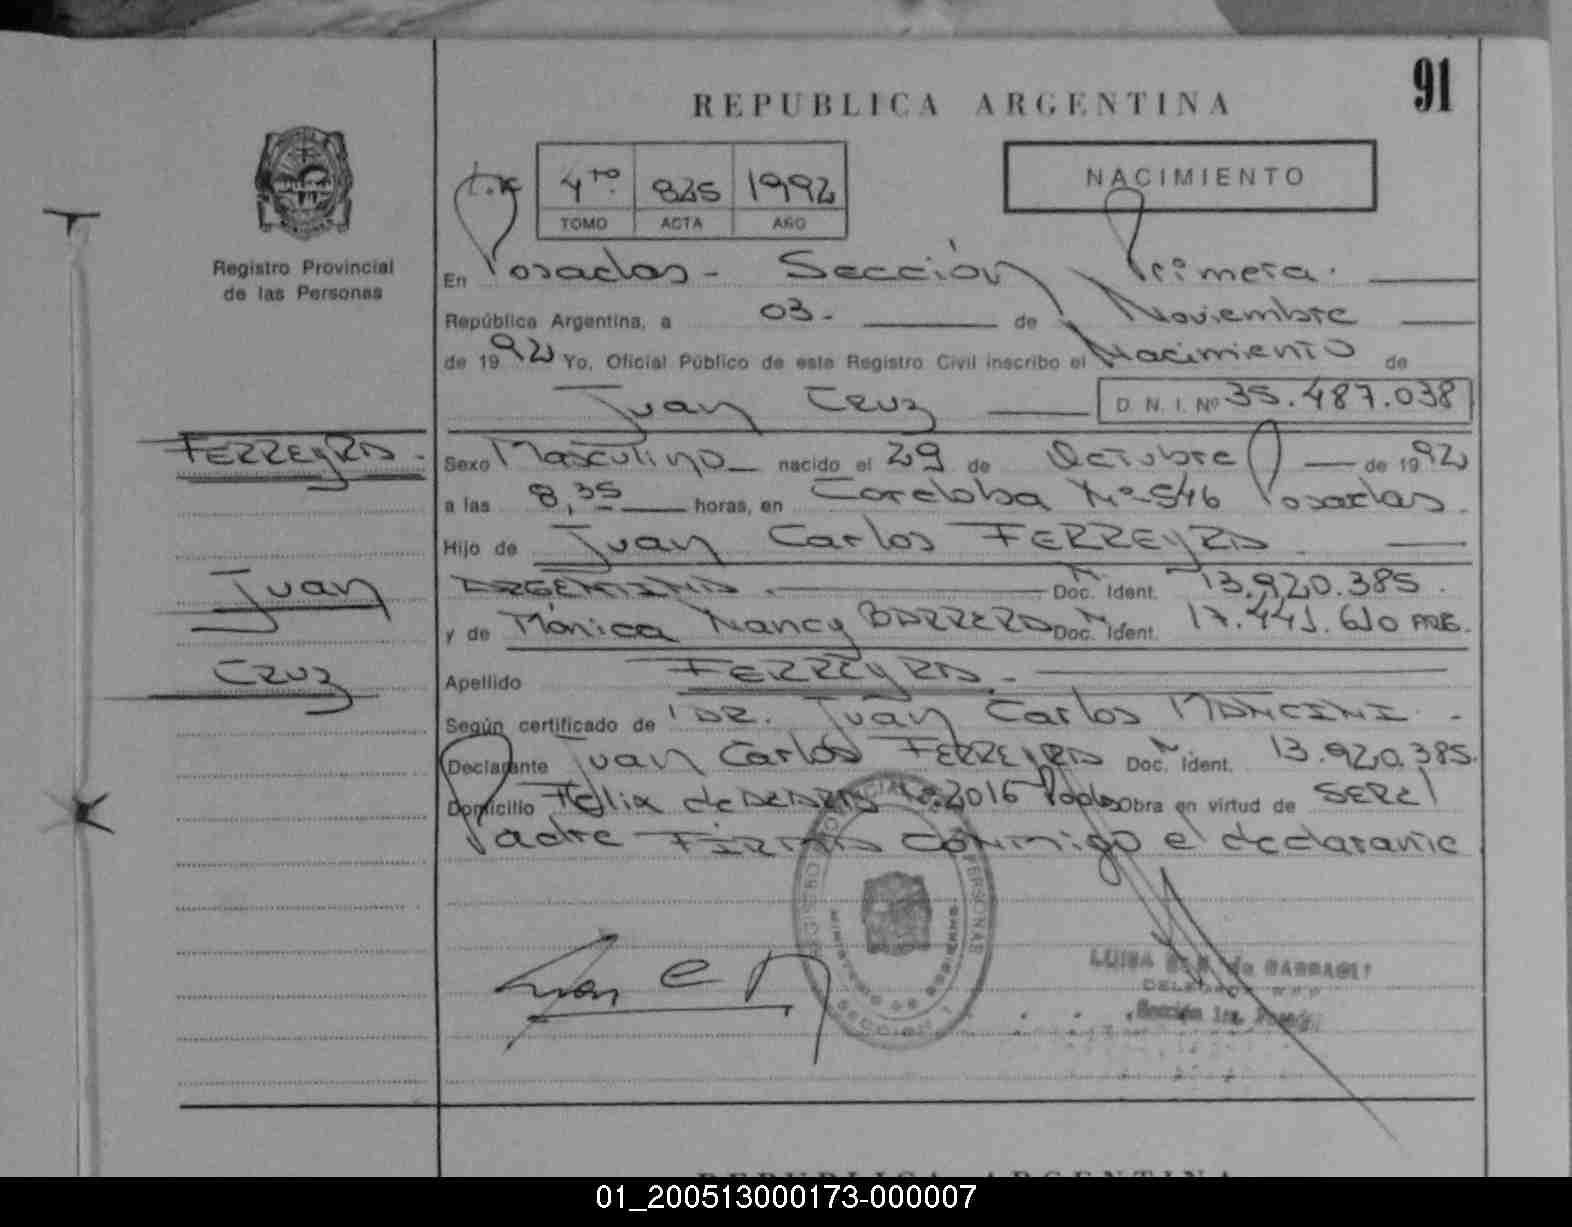 91
REPUBLICA ARGENTINA
NACIMIENTO
4to 825 1992
TOMO ACTA AÑO
Registro Provincial
de las Personas
En Posadas - Sección Primera.
República Argentina, a 03. de Noviembre
de 1992 Yo, Oficial Público de este Registro Civil inscribo el Nacimiento de
Juan Cruz D. N. I. Nº 35.487.038
FERREYRA.
Juan
Cruz
Sexo Masculino nacido el 29 de Octubre de 1992
a las 8,35 horas, en Cordoba Nº 546 Posadas.
Hijo de Juan Carlos FERREYRA.
ARGENTINA. Doc. Ident. 13.920.385.
y de Mónica Nancy BARRERA Doc. Ident. 17.441.610 ARG.
Apellido FERREYRA.
Según certificado de DR. Juan Carlos MANCINI.
Declarante Juan Carlos FERREYRA Doc. Ident. 13.920.385.
Domicilio Félix de AZARA Nº 2016 Pdas Obra en virtud de SER el
Padre FIRMA conmigo el declarante
REGISTRO PROVINCIAL PERSONAS
MINISTERIO DE GOBIERNO
SECCION 1
LUISA de
DELEGADA
Sección 1ra.
REPUBLICA ARGENTINA
01_200513000173-000007